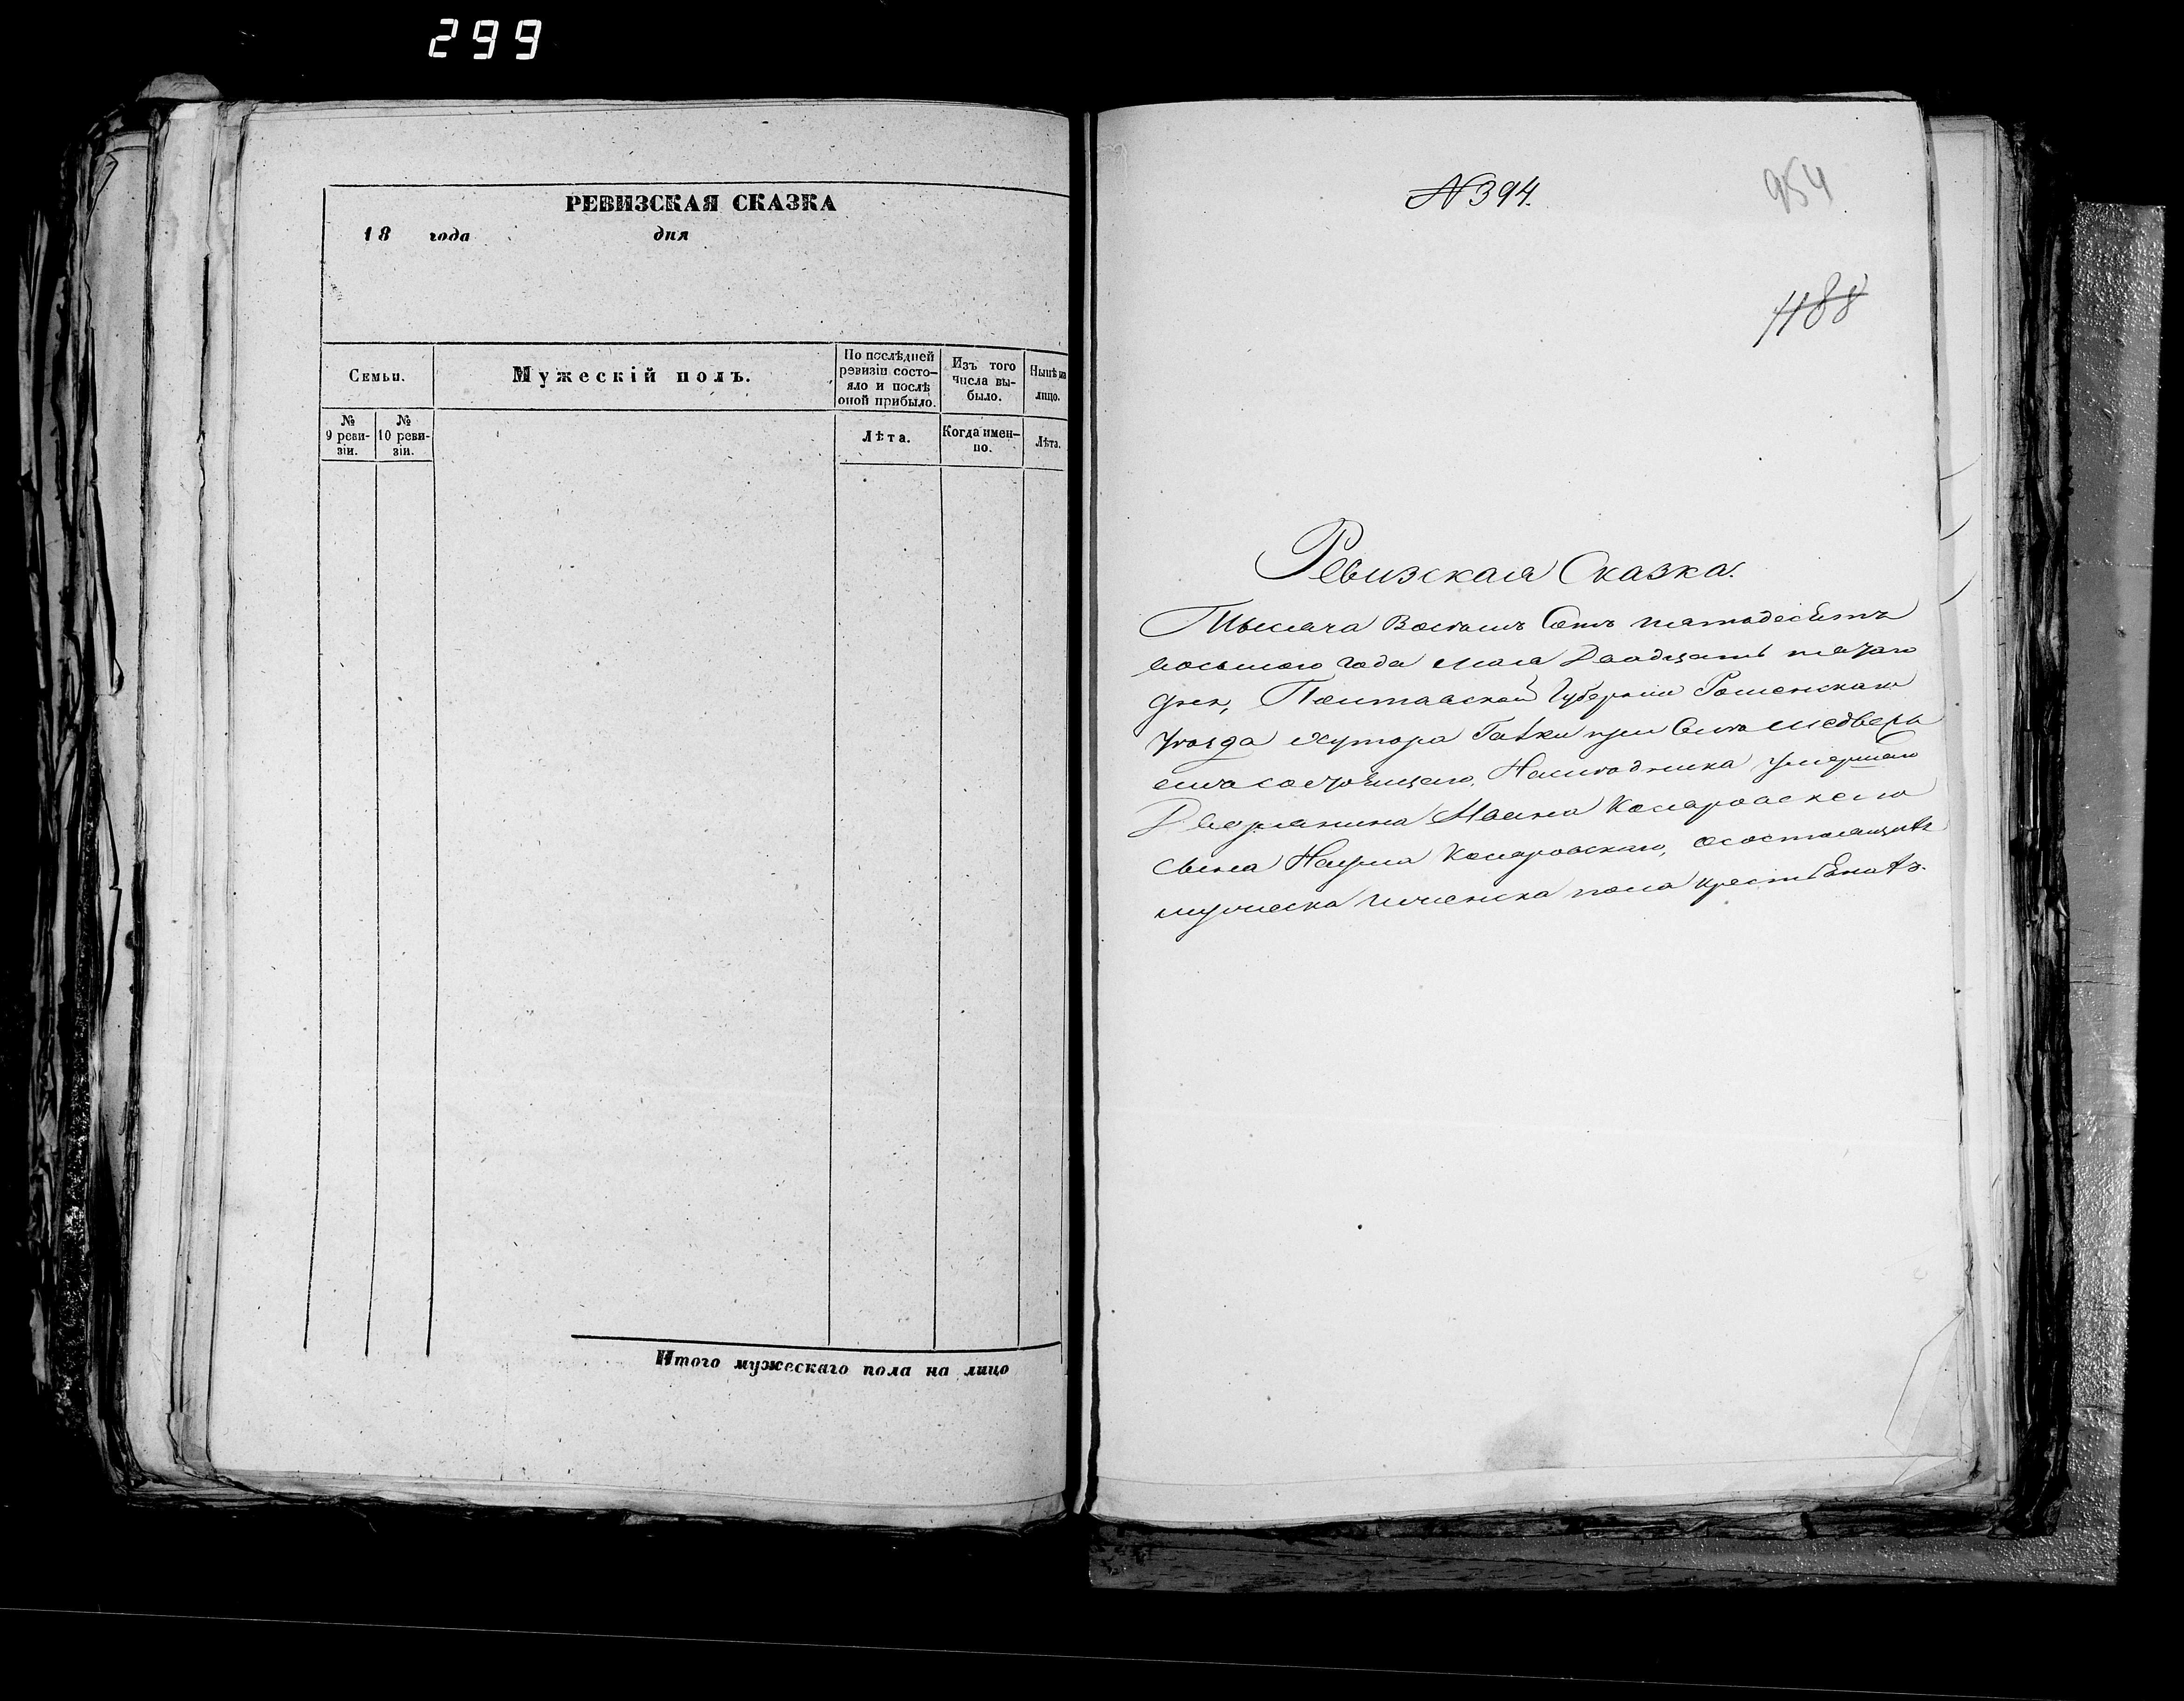 299
РЕВИЗСКАЯ СКАЗКА
18 года дня
Семьи.
Мужескій полъ.
По послѣдней ревизіи состо-яло и послѣ оной прибыло.
Изъ того числа вы-было.
Нынѣ на лицо.
№ 9 реви-зіи.
№ 10 реви-зіи.
Лѣта.
Когда имен-но.
Лѣта.
Итого мужескаго пола на лицо
№ 394.
954
1188
Ревизская Сказка.
Тысяча Восемь Сотъ пятьдесѣтъ
восьмого года мая Двадцать
дня, Полтавской Губерніи Роменскаго
уезда хутора Гаѣки при Селѣ
Наследника умершаго
Дворянина Ивана Комаровскаго
сына Наума Комаровскаго, осостоящихъ
мужеска иженска пола крестьѣнаѣъ.